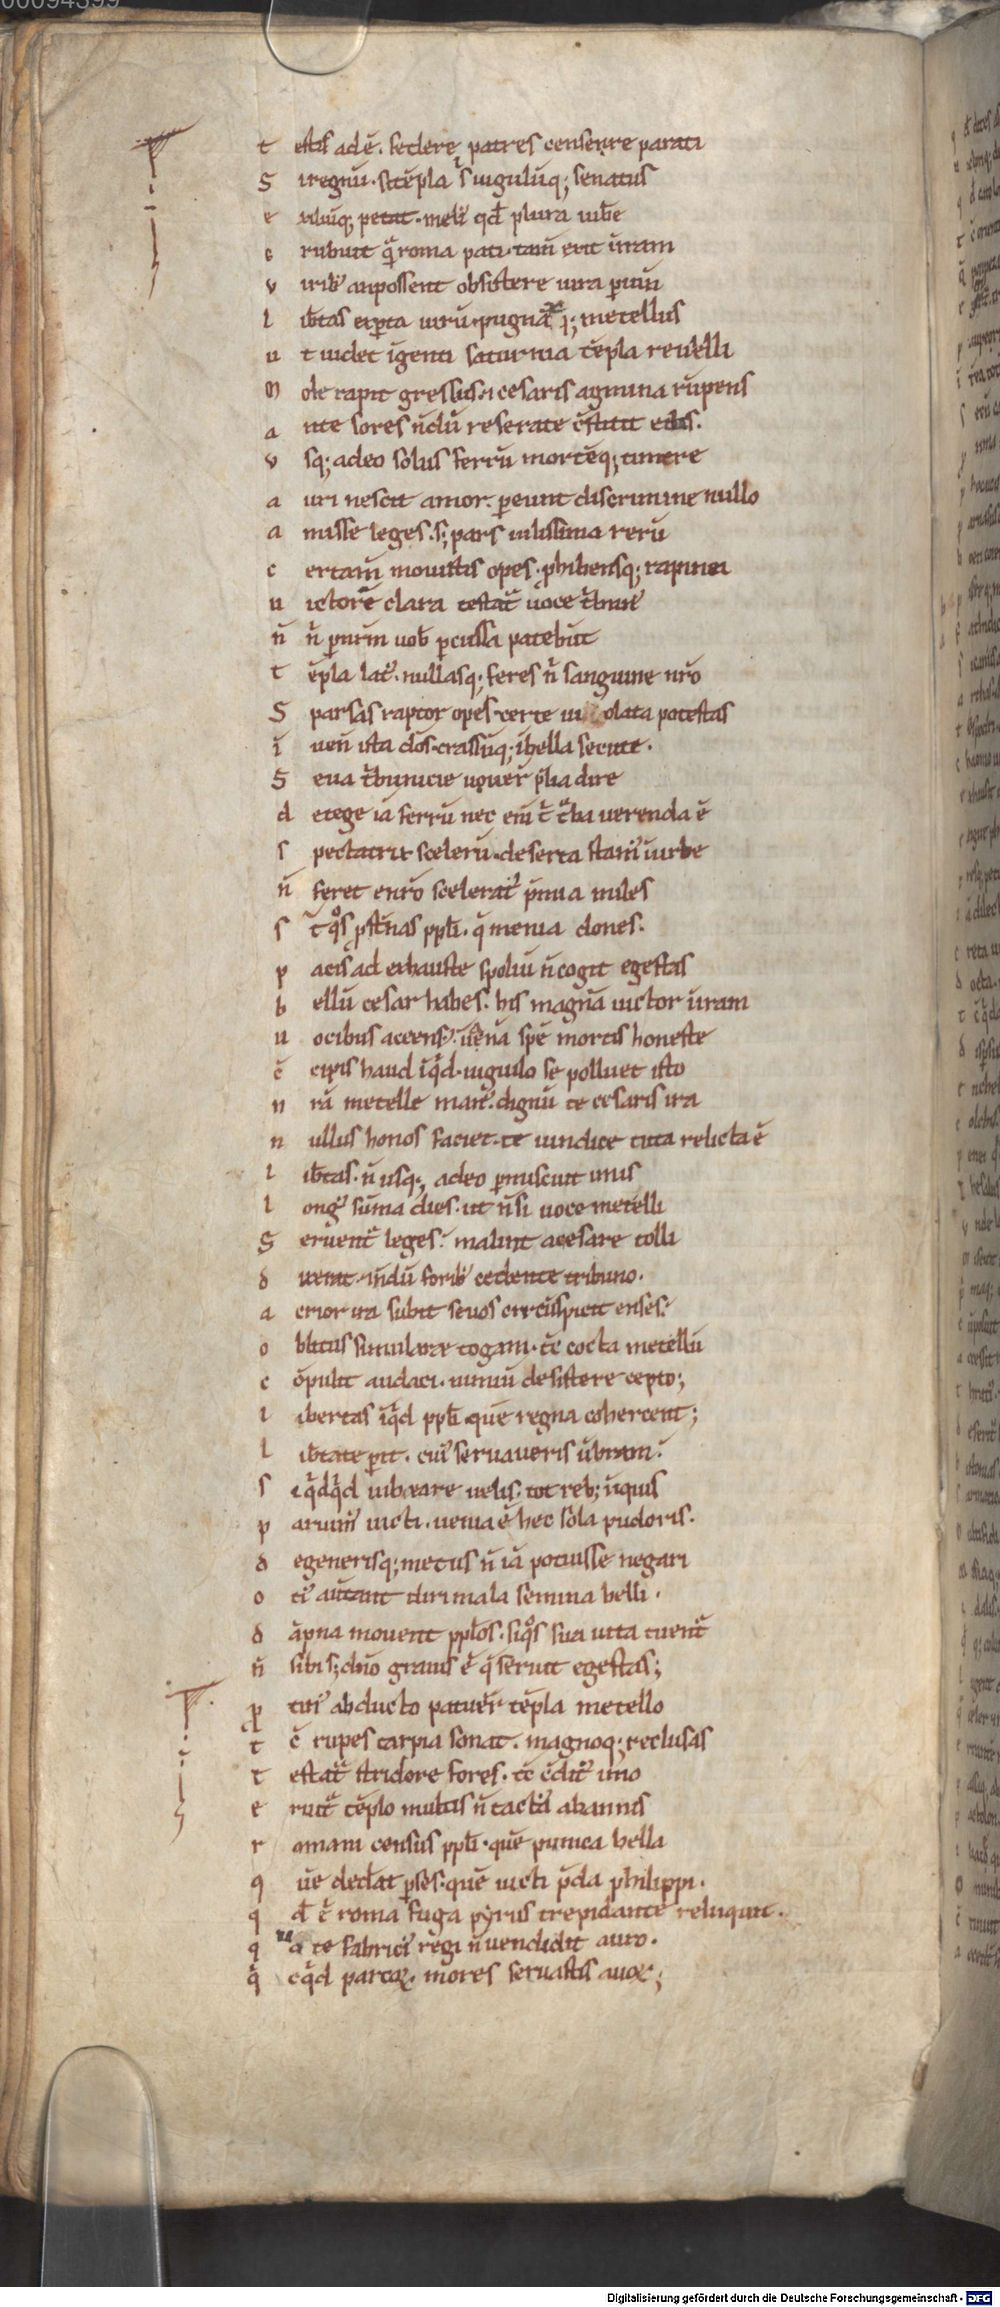 t estis adē. sedere patres censere parati
S i regnū. si tēpla s̄ iugulūq; senatus
e xiliūq; petat. meliꝰ qd̄ plura iubē
e rubuit qͣ roma pati. tam̄ erit ūram
v iribꝰ an possent obsistere iura p uim̄
l ib̄tas exp̄ta uirū. pugnaxq; metellus
u t uidet īgenti saturnia tēpla reuelli
M ole rapit gressus. ⁊ cesaris agmina rūpens
a nte fores n̄dū reserate c̄stitit edis.
v sq; adeo solus ferrū mortēq; timere
a uri nescit amor. peunt discrimine nullo
a misse leges. s; pars uilissima rerū
c ertam̄ mouistis opes. phibensq; rapinei
u ictorē clara testat̄ uoce t̄bunꝰ
n̄ n̄ p nr̄m uob̄ pcussa patebūt
t ēpla latꝰ. nullasq; feres n̄ sanguine nr̄o
S parsas raptor opes. certe uiolata potestas
i uen̄ ista dōs. crassūq; ī bella secute.
S eua t̄bunicie uouer̄ p̄lia dire
d etege iā ferrū nec eni t̄ t̄ba uerenda ē
s pectatrix scelerū. deserta stamꝰ ī urbe
n̄ feret e nr̄o sceleratꝰ p̄mia miles
s t̄ qͦs pst̄nas ppl̄i. qͣ menia dones.
p acis ad exhauste spoliū n̄ cogit egestas
b ellū cesar habes. his magnā uictor ūram
u ocibus accensꝰ. uanā spē mortis honeste
c̄ cipis haud īqͥd. iugulo se polluet isto
n rā metelle manꝰ. dignū te cesaris ira
n ullus honos faciet. te uindice tuta relicta ē
l ib̄tas. n̄ usq; adeo pmiscuit imis
l ongꝰ sūma dies. ut n̄ si uoce metelli
S eruent̄ leges. malint a cesare tolli
d ixerat. n̄dū foribꝰ cedente tribuno.
a crior ira subit seuos circūspicit enses.
o blitus simulare togam. tc̄ cocta metellū
c ōpulit audaci. nimiū desistere cepto;
l ibertas īqͥd ppl̄i. quē regna cohercent;
l ib̄tate pit. cuiꝰ seruaueris ūbram.
s i qͥdqͥd iubeare uelis. tot reb; iniquis
p aruimꝰ uicti. uenia ē hec sola pudoris.
d egenerisq; metus n̄ iā potuisse negari
o ciꝰ auertant diri mala semina belli.
d āpna mouent ppl̄os. siqͦs sua iura tuent̄
n̄ sibi s; dn̄o grauis ē q̄ seruit egestas;
p tinꝰ abducto patuer̄ tēpla metello
t c̄ rupes tarpia sonat. magnoq; reclusas
t estat̄ stridore fores. tc̄ c̄ditꝰ imo
e ruit̄ tēplo multis n̄ tactꝰ ab annis
r omani census ppl̄i. quē punica bella
q uē ded̄at pses. quē uicti p̄da philippi.
q d̄ t̄ roma fuga pyrus trepidante reliquit.
q a te fabriciꝰ regi n̄ uendidit auro.
q̄ cqͥd parcoꝝ. mores seruastis auoꝝ;
Digitalisierung gefördert durch die Deutsche Forschungsgemeinschaft - DFG